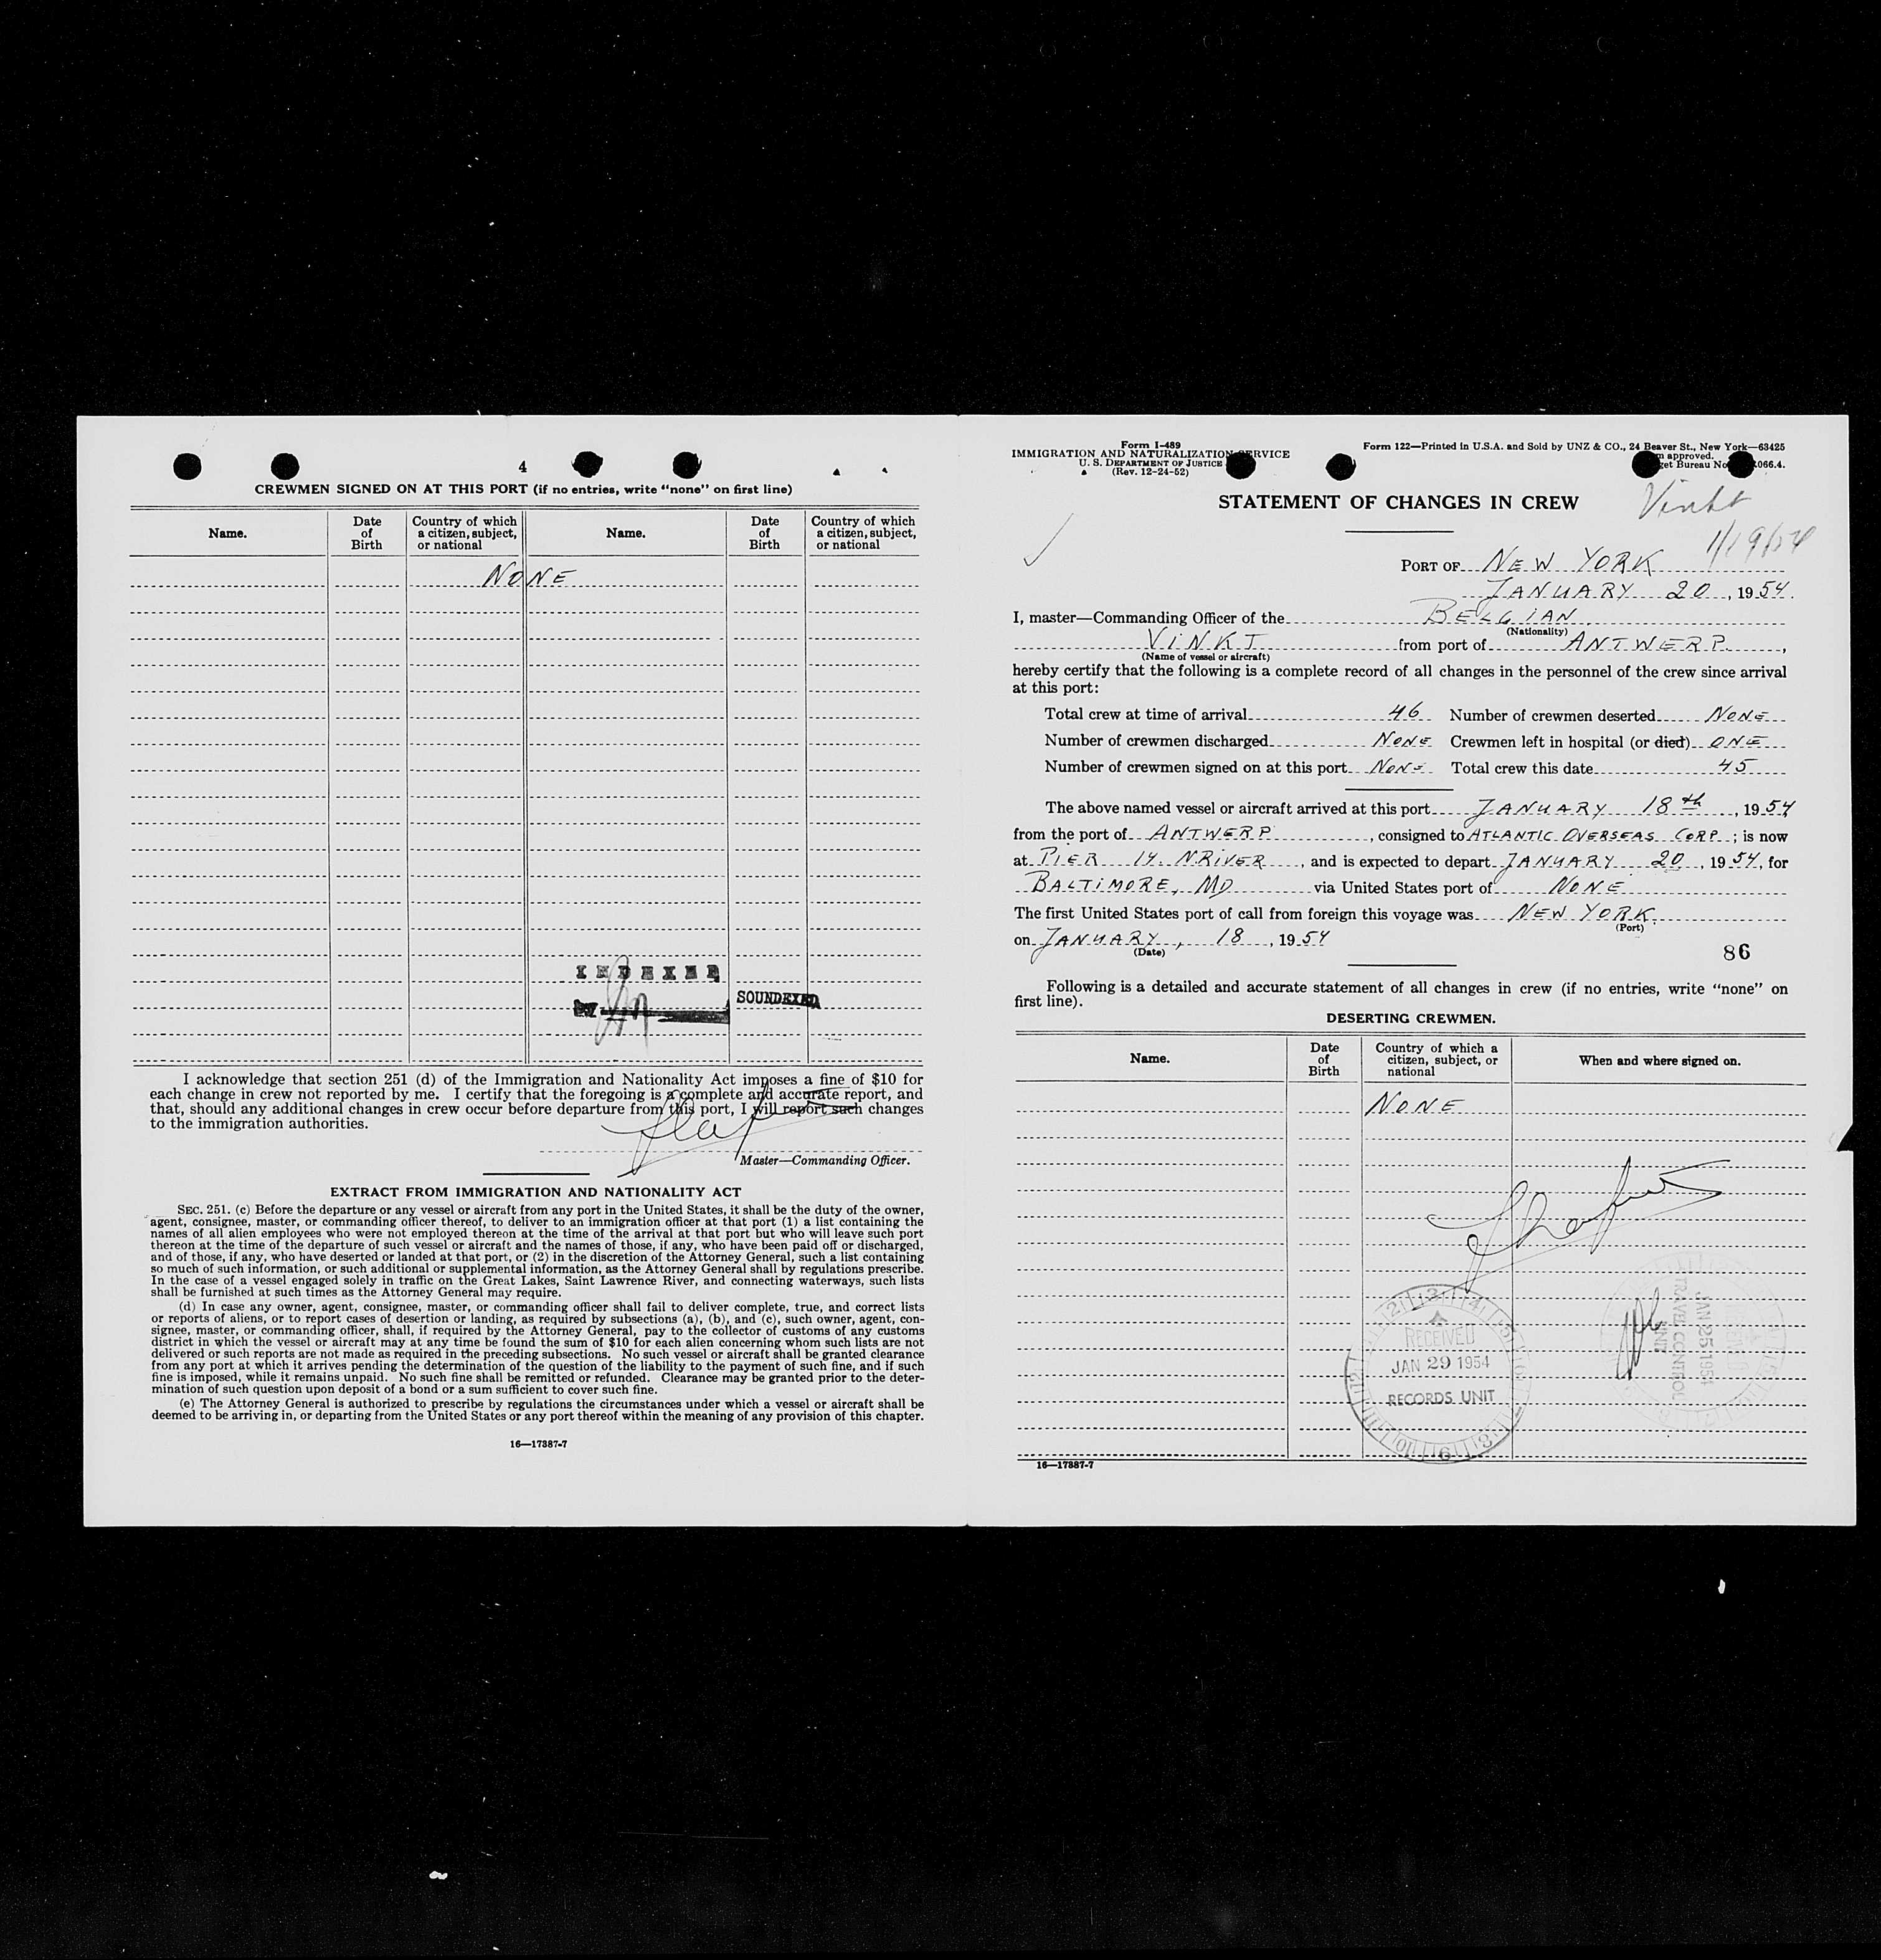 4
CREWMEN SIGNED ON AT THIS PORT (if no entries, write “none” on first line)
Name. Date of Birth Country of which a citizen, subject, or national Name. Date of Birth Country of which a citizen, subject, or national
NONE
INDEXED
SOUNDEXED
I acknowledge that section 251 (d) of the Immigration and Nationality Act imposes a fine of $10 for
each change in crew not reported by me. I certify that the foregoing is a complete and accurate report, and
that, should any additional changes in crew occur before departure from this port, I will report such changes
to the immigration authorities.
Master—Commanding Officer.
EXTRACT FROM IMMIGRATION AND NATIONALITY ACT
SEC. 251. (c) Before the departure or any vessel or aircraft from any port in the United States, it shall be the duty of the owner,
agent, consignee, master, or commanding officer thereof, to deliver to an immigration officer at that port (1) a list containing the
names of all alien employees who were not employed thereon at the time of the arrival at that port but who will leave such port
thereon at the time of the departure of such vessel or aircraft and the names of those, if any, who have been paid off or discharged,
and of those, if any, who have deserted or landed at that port, or (2) in the discretion of the Attorney General, such a list containing
so much of such information, or such additional or supplemental information, as the Attorney General shall by regulations prescribe.
In the case of a vessel engaged solely in traffic on the Great Lakes, Saint Lawrence River, and connecting waterways, such lists
shall be furnished at such times as the Attorney General may require.
(d) In case any owner, agent, consignee, master, or commanding officer shall fail to deliver complete, true, and correct lists
or reports of aliens, or to report cases of desertion or landing, as required by subsections (a), (b), and (c), such owner, agent, con-
signee, master, or commanding officer, shall, if required by the Attorney General, pay to the collector of customs of any customs
district in which the vessel or aircraft may at any time be found the sum of $10 for each alien concerning whom such lists are not
delivered or such reports are not made as required in the preceding subsections. No such vessel or aircraft shall be granted clearance
from any port at which it arrives pending the determination of the question of the liability to the payment of such fine, and if such
fine is imposed, while it remains unpaid. No such fine shall be remitted or refunded. Clearance may be granted prior to the deter-
mination of such question upon deposit of a bond or a sum sufficient to cover such fine.
(e) The Attorney General is authorized to prescribe by regulations the circumstances under which a vessel or aircraft shall be
deemed to be arriving in, or departing from the United States or any port thereof within the meaning of any provision of this chapter.
16—17387-7
Form I-489
IMMIGRATION AND NATURALIZATION SERVICE
U. S. DEPARTMENT OF JUSTICE
(Rev. 12-24-52)
Form 122—Printed in U.S.A. and Sold by UNZ & CO., 24 Beaver St., New York—63425
approved.
Bureau No. 066.4.
STATEMENT OF CHANGES IN CREW
Vinkt
1/19/54
PORT OF NEW YORK
JANUARY 20, 1954.
I, master—Commanding Officer of the BELGIAN
(Nationality)
VINKT from port of ANTWERP,
(Name of vessel or aircraft)
hereby certify that the following is a complete record of all changes in the personnel of the crew since arrival
at this port:
Total crew at time of arrival 46 Number of crewmen deserted NONE
Number of crewmen discharged NONE Crewmen left in hospital (or died) ONE
Number of crewmen signed on at this port NONE Total crew this date 45
The above named vessel or aircraft arrived at this port JANUARY 18th, 1954
from the port of ANTWERP, consigned to ATLANTIC OVERSEAS CORP; is now
at PIER 14. N.RIVER, and is expected to depart JANUARY 20, 1954, for
BALTIMORE, MD via United States port of NONE
The first United States port of call from foreign this voyage was NEW YORK.
(Port)
on JANUARY, 18, 1954
(Date)
86
Following is a detailed and accurate statement of all changes in crew (if no entries, write “none” on
first line).
DESERTING CREWMEN.
Name. Date of Birth Country of which a citizen, subject, or national When and where signed on.
NONE
RECEIVED
JAN 29 1954
RECORDS UNIT
RECEIVED
JAN 25 1954
TRAVEL CONTROL
UNIT
16—17387-7